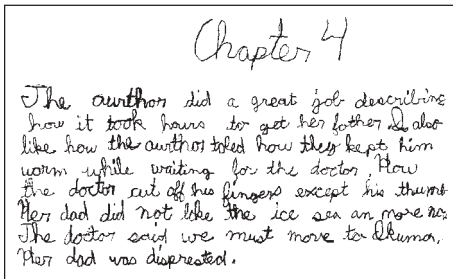 Chapter 4
The aurthor did a great job describing
how it took hours to get her father. I also
like how the aurthor toled how they kept him
worm while writing for the doctor. How
the doctor cut off his fingers except his thumb
Her dad did not like the ice sea an more no.
The doctor said we must move to Okuma,
Her dad was dispresed.